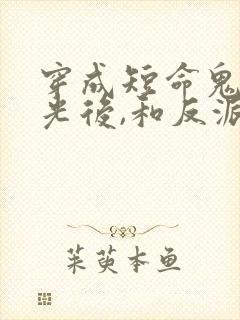 穿成短命鬼
光後,和反派
茱萸本鱼